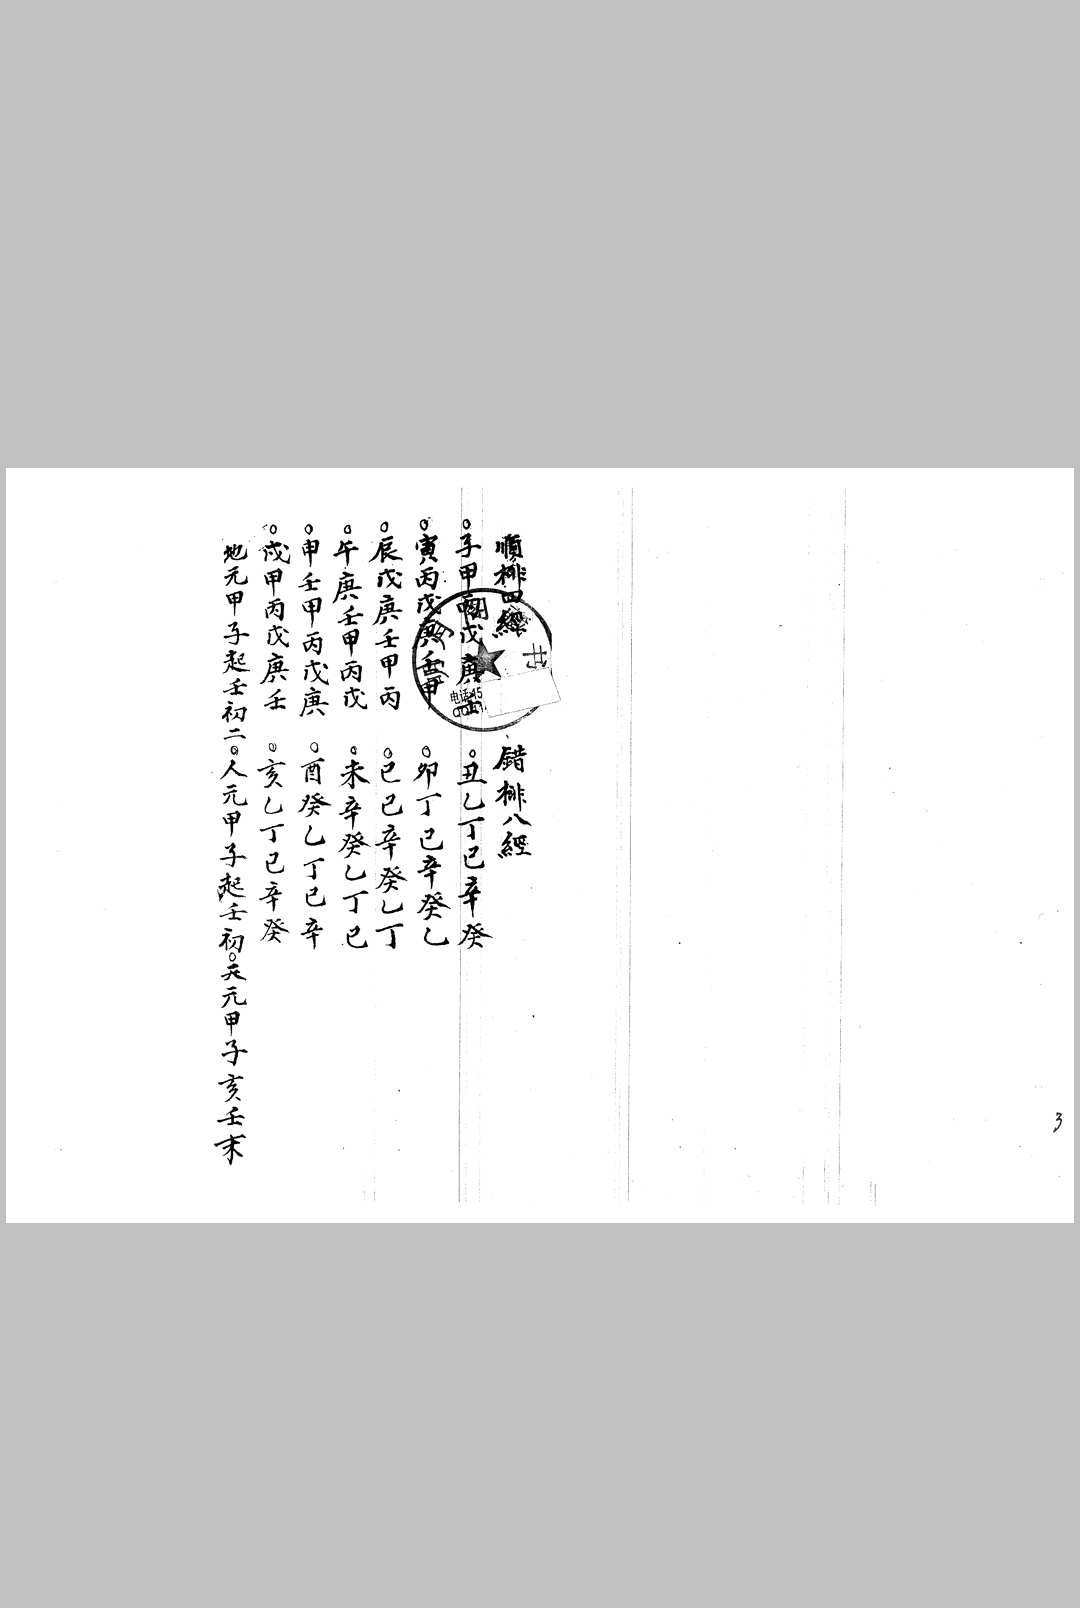 順排四經　錯排八經
○子甲丙戊庚壬　○丑乙丁已辛癸
○寅丙戊庚壬甲　○卯丁已辛癸乙
○辰戊庚壬甲丙　○已已辛癸乙丁
○午庚壬甲丙戊　○未辛癸乙丁已
○申壬甲丙戊庚　○酉癸乙丁已辛
○戌甲丙戊庚壬　○亥乙丁已辛癸
地元甲子起壬初二○人元甲子起壬初○天元甲子亥壬末
书
电话:45
3